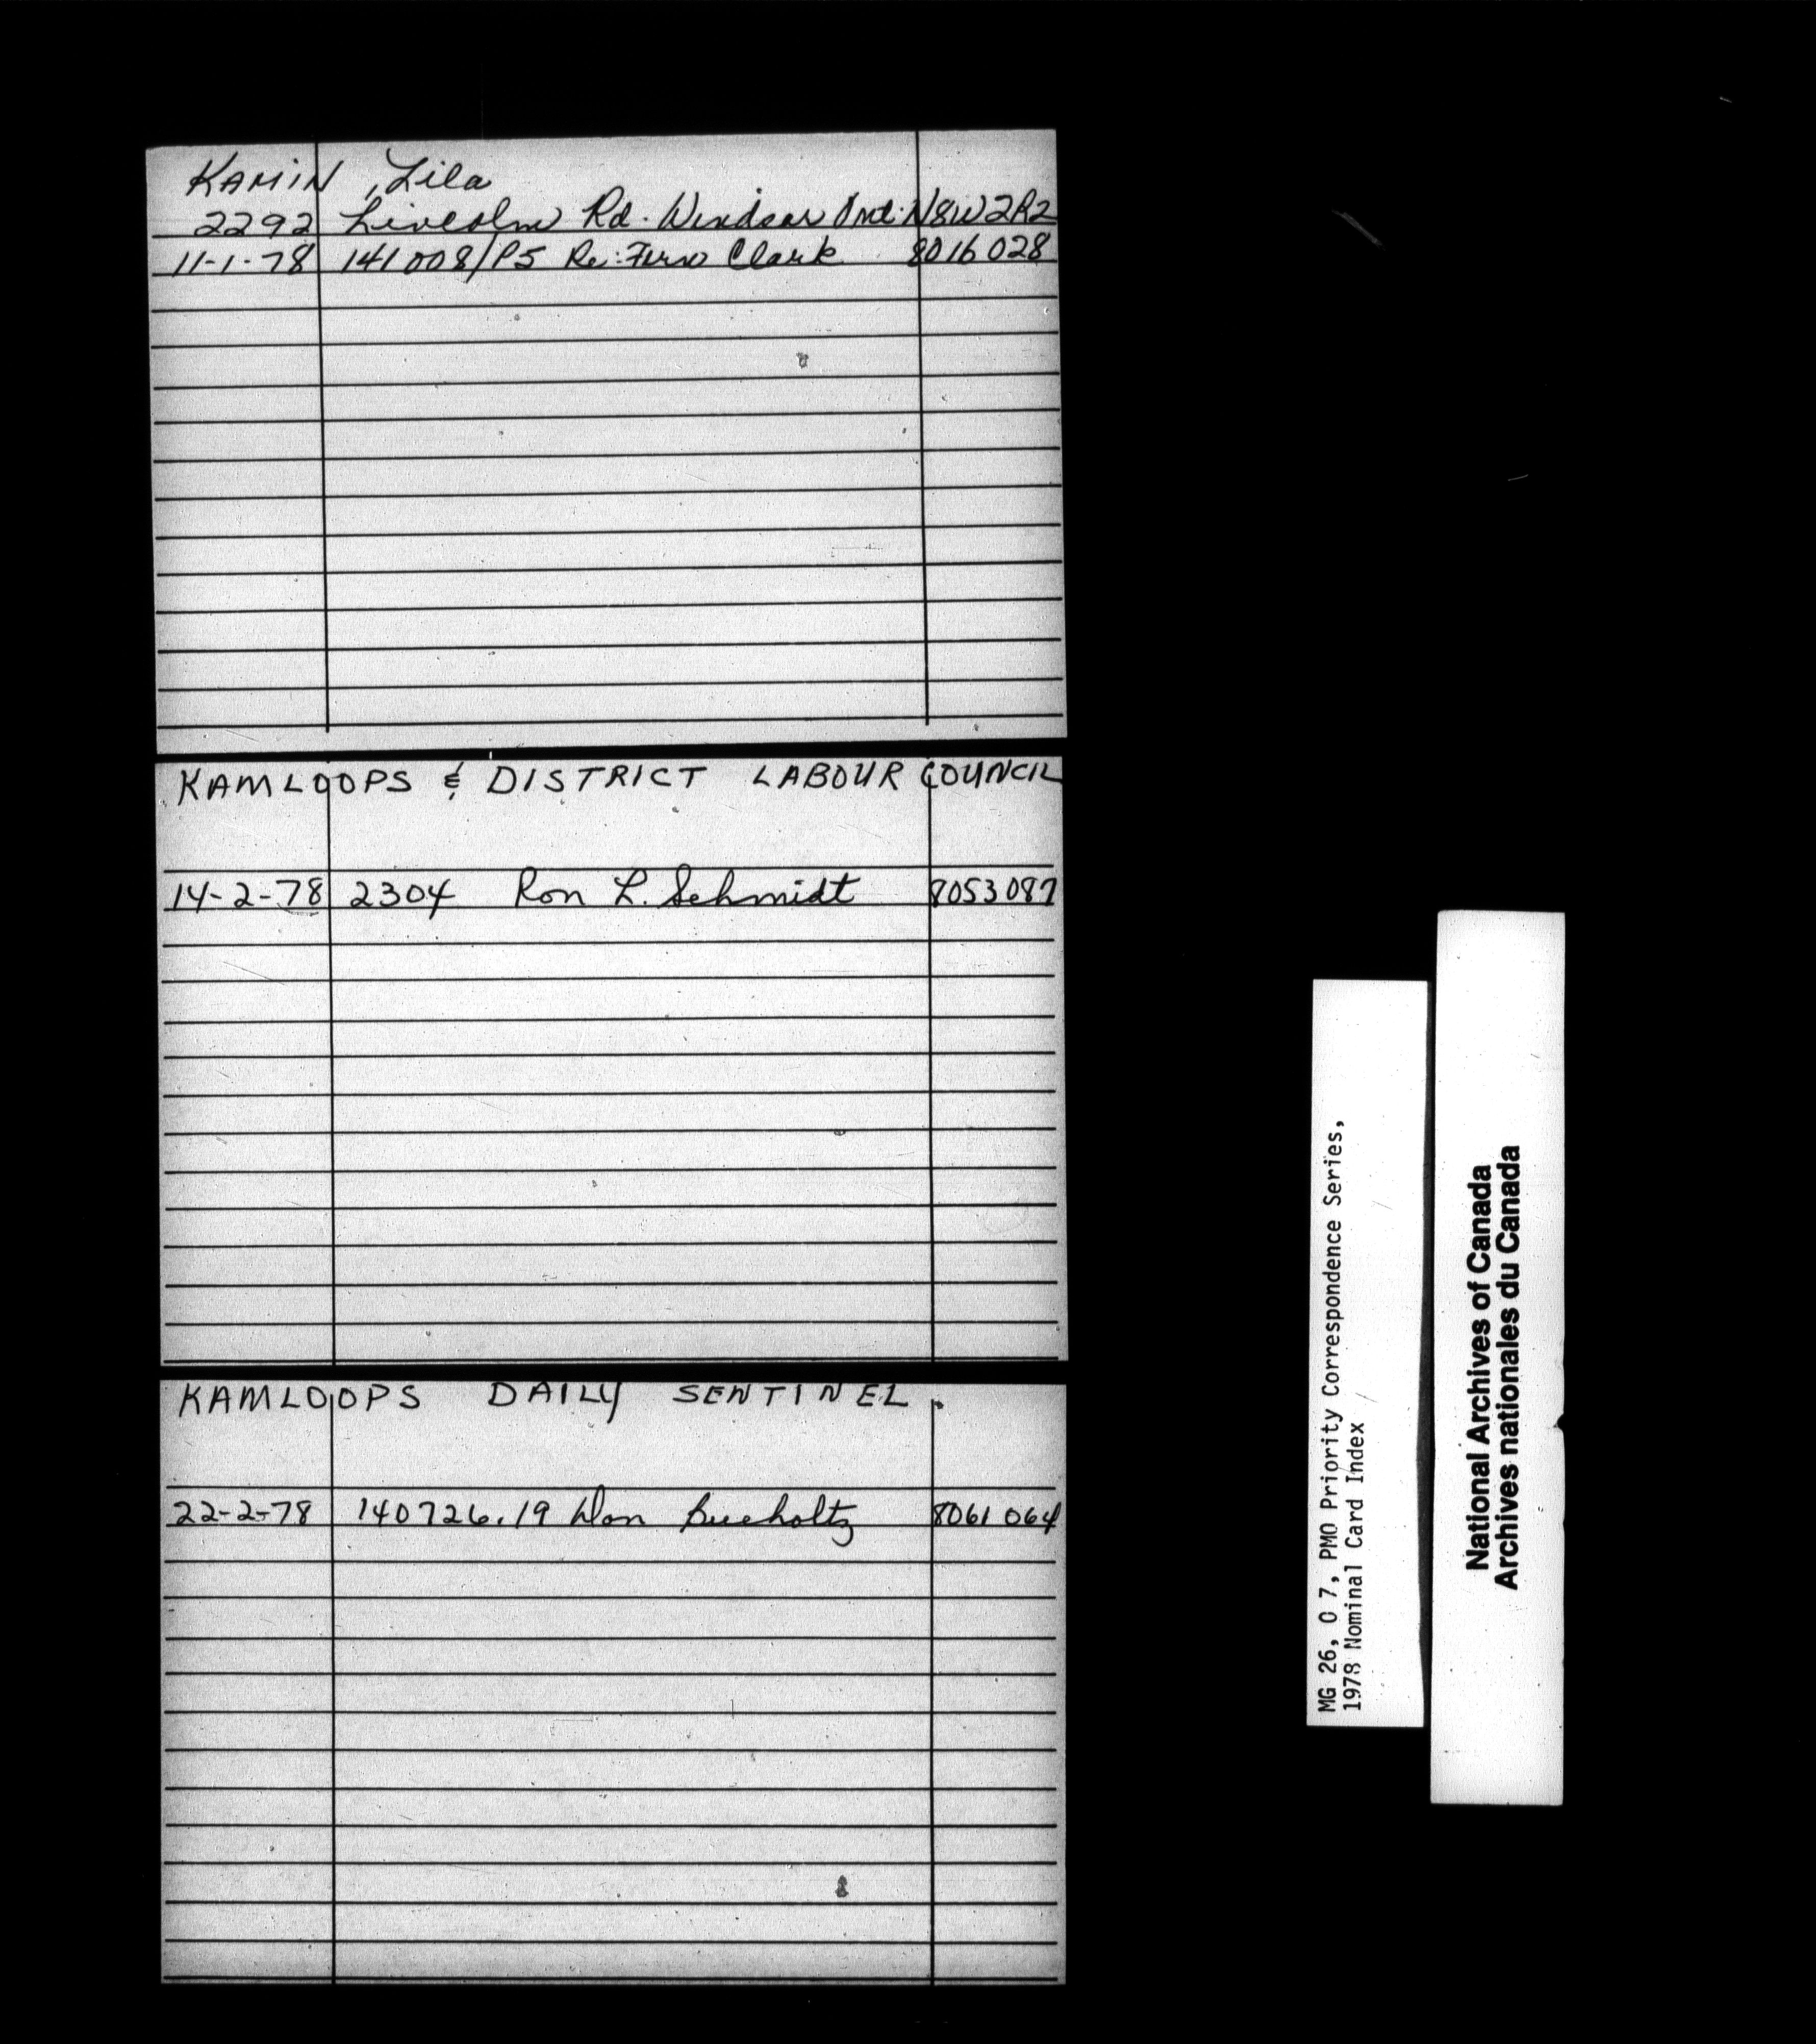 KAMIN, Lila
2292 Lincoln Rd. Windsor Ont. N8W2R2
11-1-78 141008/P5 Re: Fern Clark 8016028
KAMLOOPS & DISTRICT LABOUR COUNCIL
14-2-78 2304 Ron L. Schmidt 8053087
KAMLOOPS DAILY SENTINEL.
22-2-78 140726.19 Don Bucholtz 8061064
MG 26, O 7, PMO Priority Correspondence Series,
1978 Nominal Card Index
National Archives of Canada
Archives nationales du Canada